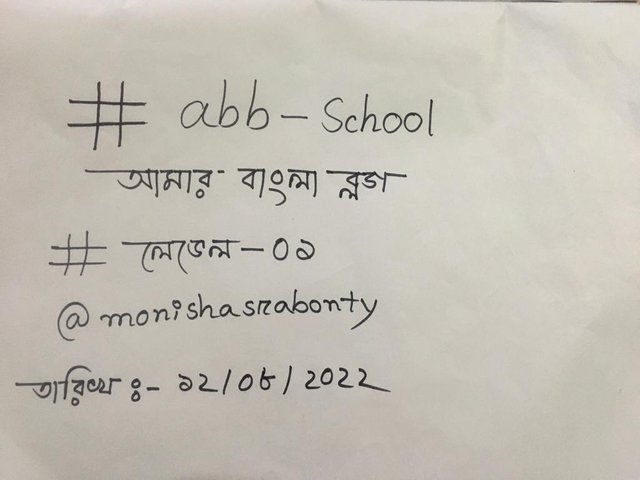 # abb - School
আমার বাংলা ব্লগ
# লেভেল - ০১
@monishasrabonty
তারিখ ঃ- ১২/০৮/২০২২